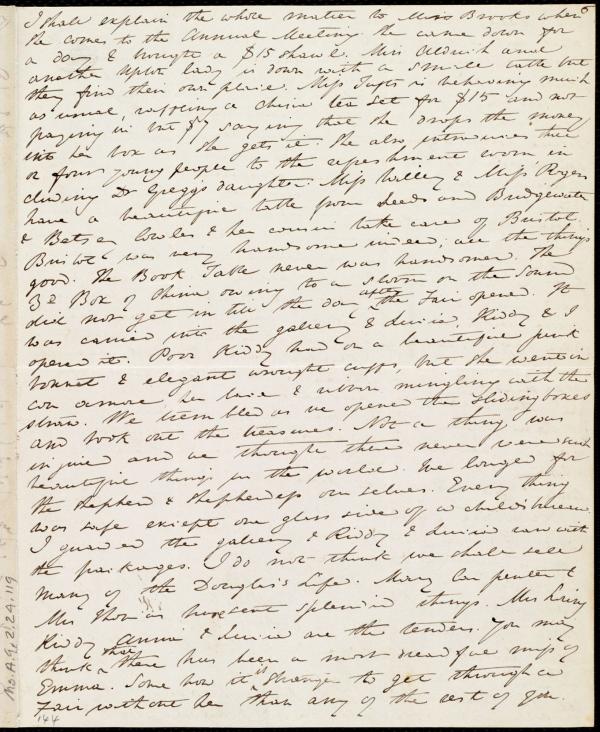 6
I shall explain the whole matter to Miss Brooks when
she comes to the Annual Meeting. She came down for
a day & bought a $15 shawl. Mrs Aldrich and
another Upton lady is down with a small table but
they find their own place. Miss Tufts is behaving much
as usual, raffling a china tea set for $15 and not
paying in but $7 saying that she drops the money
into her box as she gets it. She also introduces three
or four young people to the refreshment room in
cluding Dr Gregg's daughter. Miss Willey & Miss Rogers
have a beautiful table from Leeds and Bridgewater
& Betsey Cowles & her cousin take care of Bristol.
Bristol was very handsome indeed, all the things
good. The Book Table never was handsomer. The
3d Box of China owing to a storm on the Sound
did not get in till the day after the Fair opened. It
was carried into the gallery & Louisa, Kiddy & I
opened it. Poor Kiddy had on a beautiful pink
bonnet & elegant wrought cuffs, but she went in
con amore her lace & ribbon mingling with the
straw. We trembled as we opened the sliding boxes
and took out the treasures. Not a thing was
injured and we thought there never were such
beautiful things in the world. We longed for
the shepherd & shepherdess ourselves. Every thing
was safe except one glass side of a child's bureau.
I guarded the gallery & Kiddy & Louisa ran with
the packages. I do not think we shall sell
many of the Douglas's Life. Mary Carpenter &
Mrs Thomas have sent splendid things. Mrs Loring
Kiddy Anna & Louisa are the tenders. You may
think that there has been a most dreadful miss of
Emma. Some how it is stranger to get through a
Fair without her than any of the rest of you.
Ms.A.9.2.24.119
144